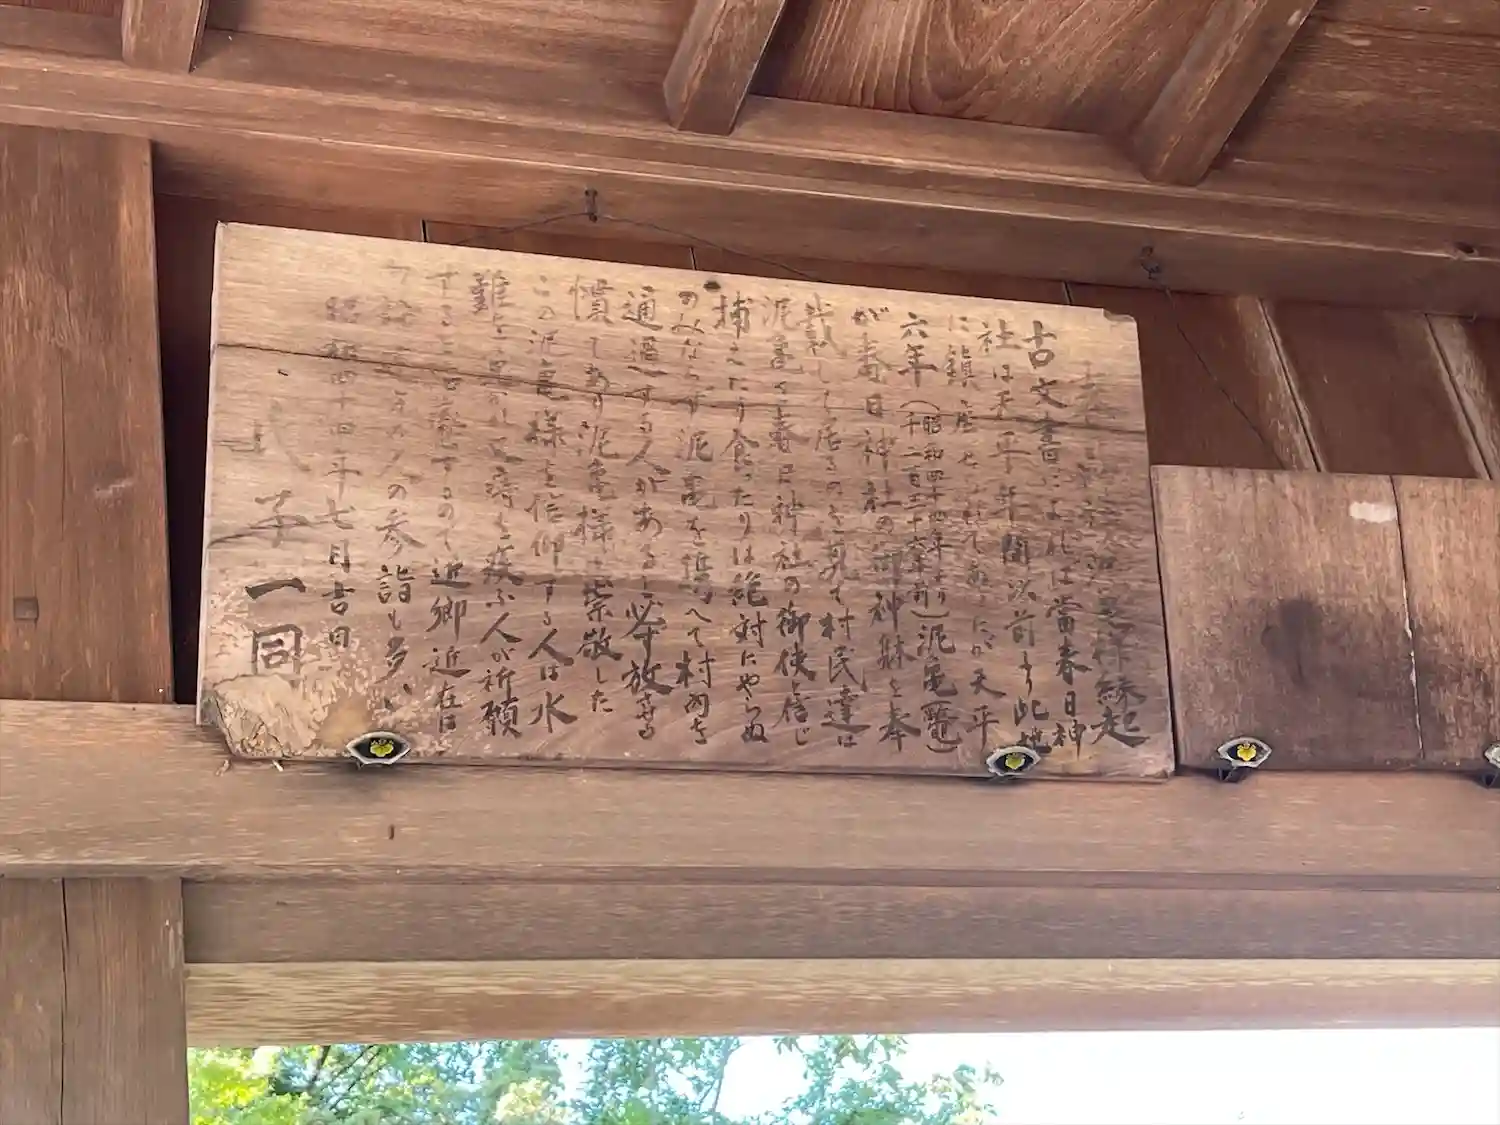 春日神社泥亀様縁起
古文書によれば當春日神
社は天平年間以前より此地
に鎮座せられてあったが天平
六年(昭和四十四年より 千二百三十六年前)泥亀(鼈)
が春日神社の御神躰を奉
戴して居るのを見て村民達は
泥亀を春日神社の御使と信じ
捕えたり食ったりは絶対にやらぬ
のみならず泥亀を捕へて村内を
通過する人があると必ず放させる
慣しであり泥亀様と崇敬した
この泥亀様を信仰する人は水
難を免かれ又痔を疾ふ人が祈願
すると全癒するので近郷近在は
の人の参詣も多い
昭和四十四年七月吉日
氏子一同